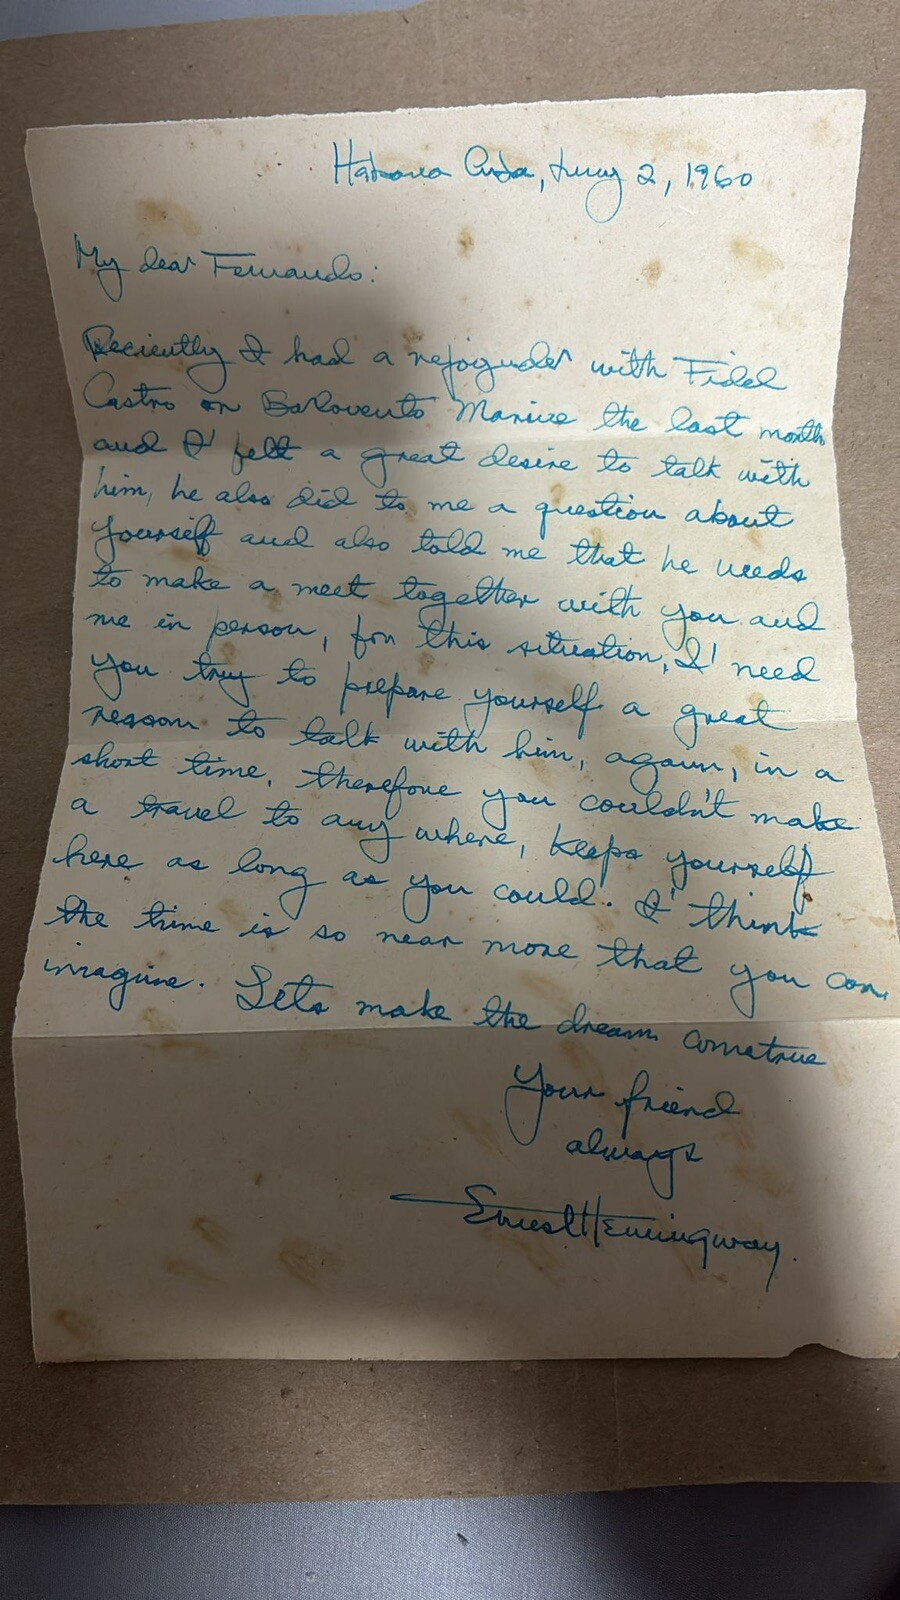 Habana Cuba, July 2, 1960
My dear Fernando:
Reciently I had a rejoguder with Fidel
Castro on Barlovento Marine the last month
and I felt a great desire to talk with
him, he also did to me a question about
yourself and also told me that he needs
to make a meet together with you and
me in person, for this situation, I need
you try to prepare yourself a great
reason to talk with him, again, in a
short time, therefore you couldn't make
a travel to any where, keeps yourself
here as long as you could. I think
the time is so near more that you can
imagine. Lets make the dream cometrue
Your friend
always
Ernest Hemingway.